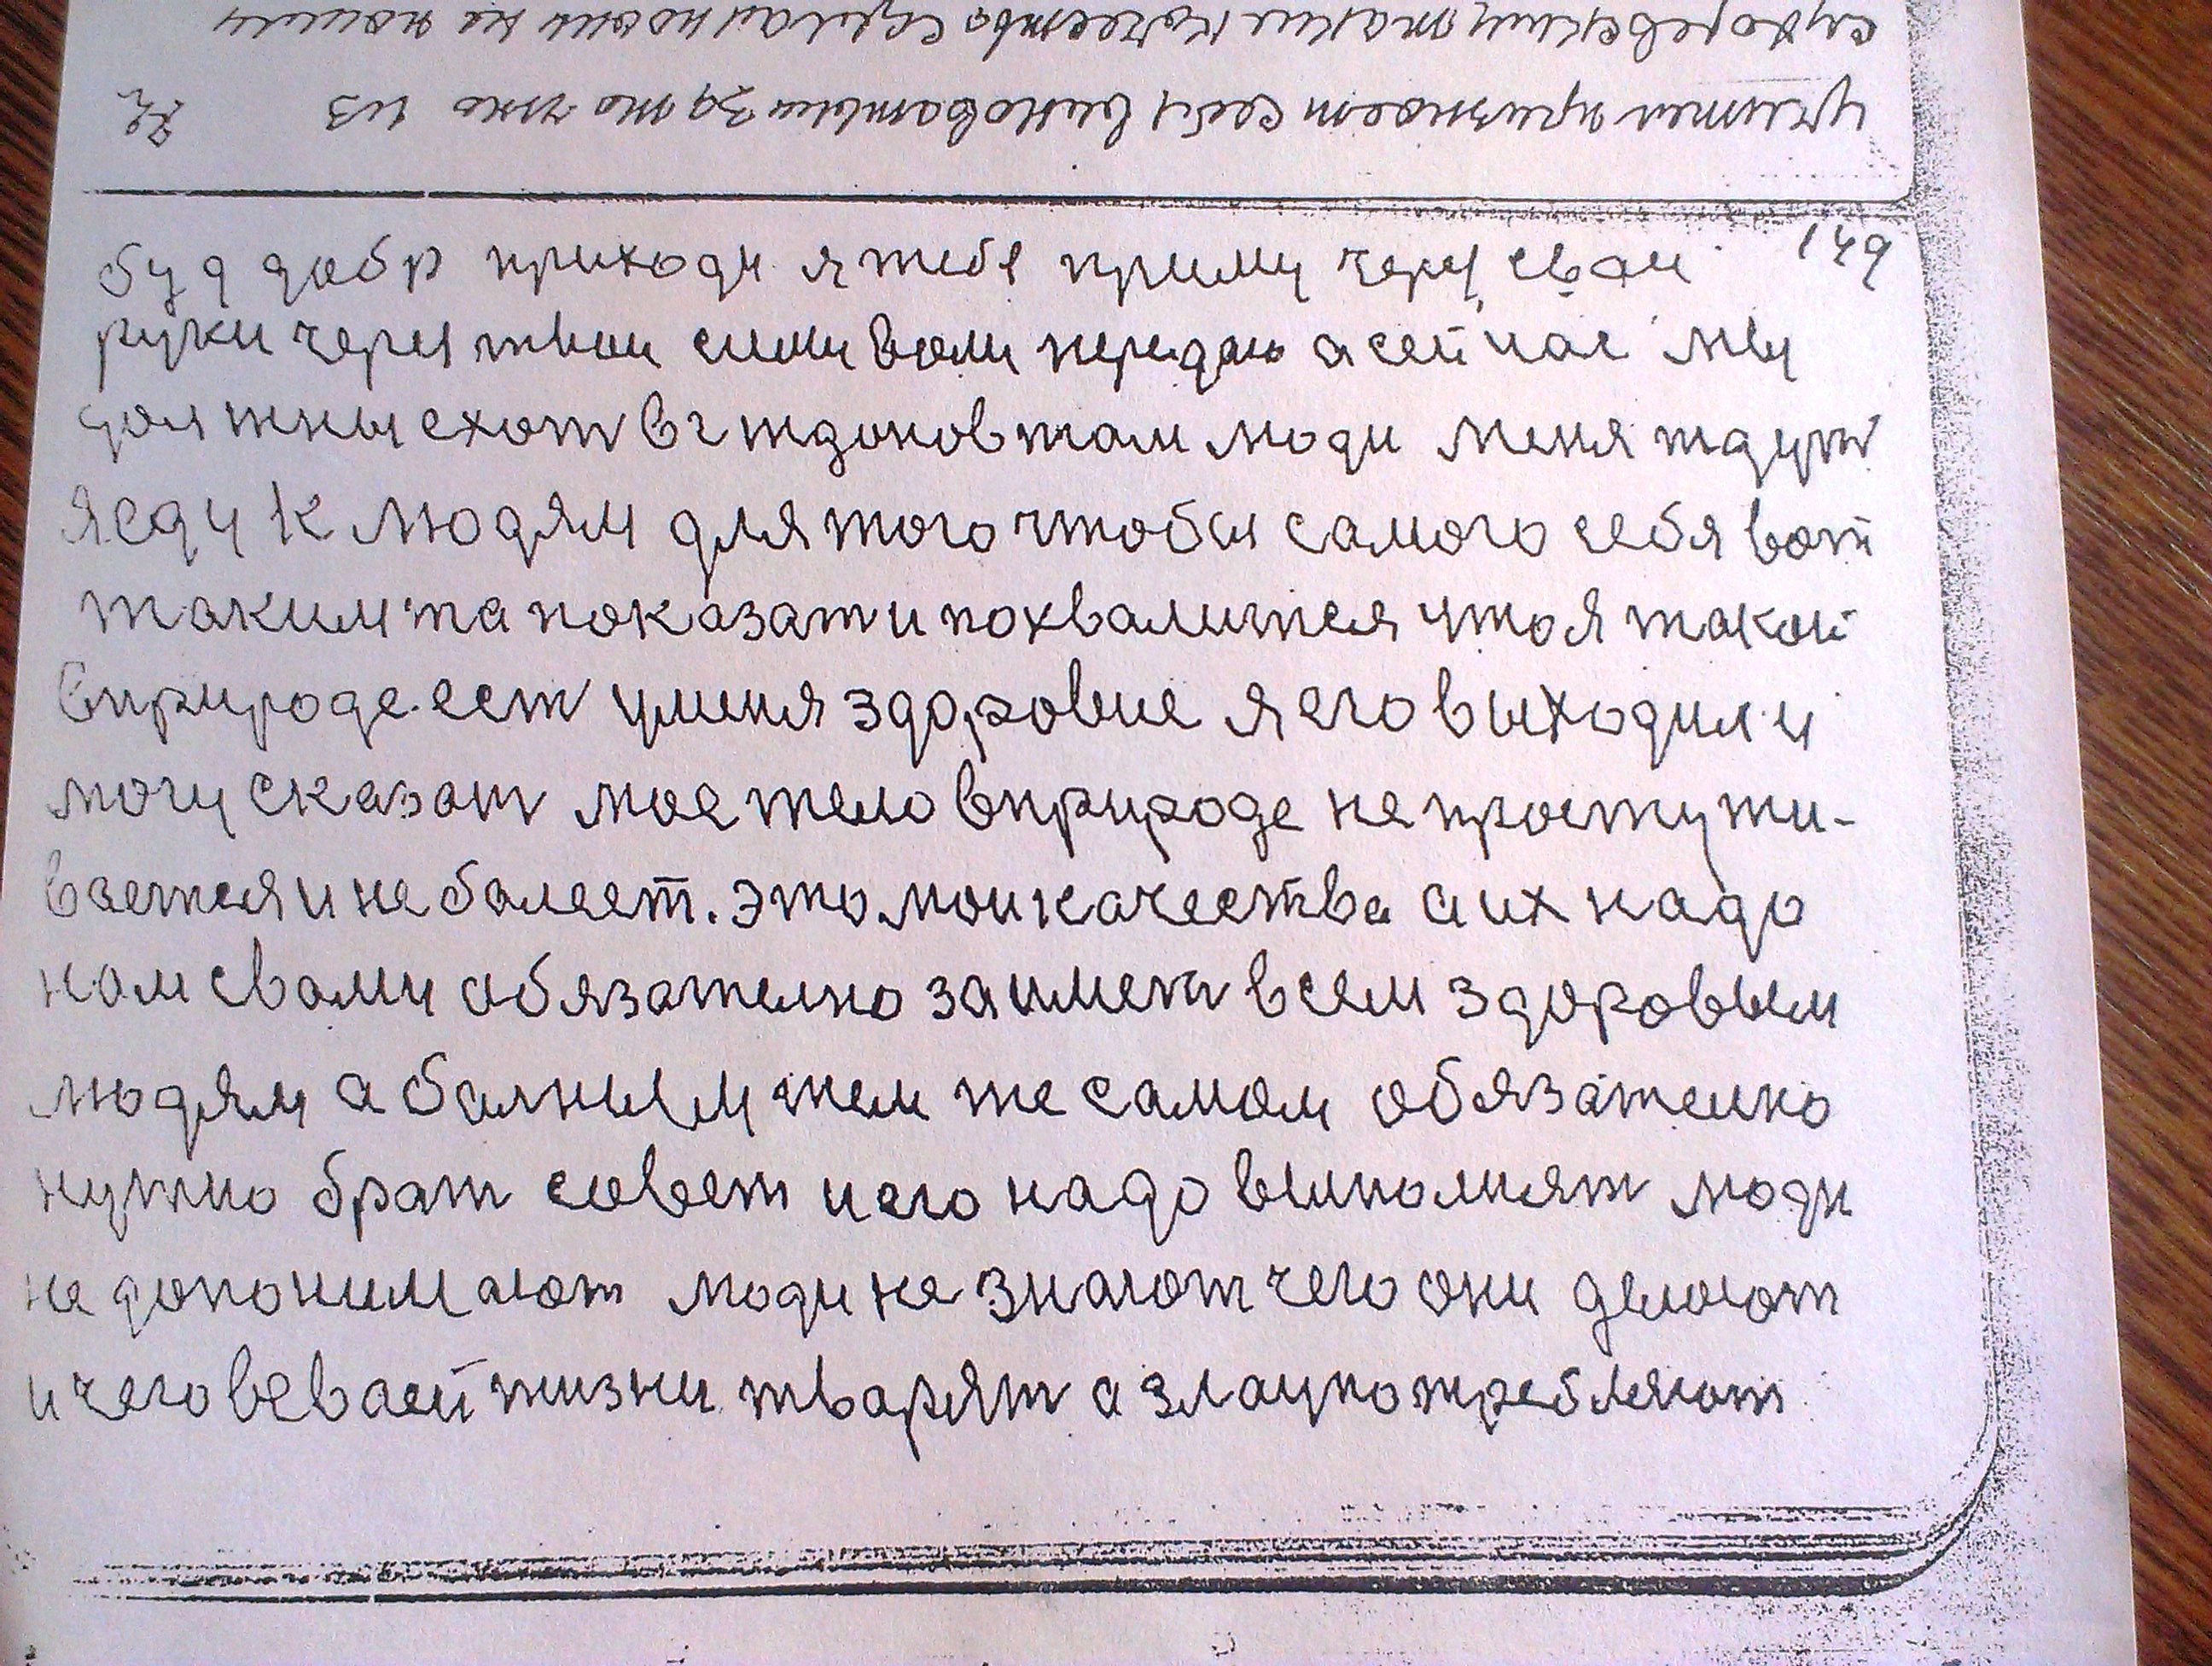 149
буд добр приходи я тебе приму через сваи
руки через твои силу волю передаю а сейчас мы
должны ехат в г жданов там люди меня ждут
я еду к людям для того чтобы самого себя вот
таким та показат и похвалится что я такой
в природе ест у меня здоровие я его выходил и
могу сказат мое тело в природе не простужи-
вается и не болеет. это мои качества а их надо
нам с вами обязателно заимет всем здоровым
людям а балным тем же самом обязателно
нужно брат совет и его надо выполнят люди
не допонимают люди не знают чего они делают
и чего в евасй жизни тварят а злаупотребляют
учител признает себя виноватым за то что из